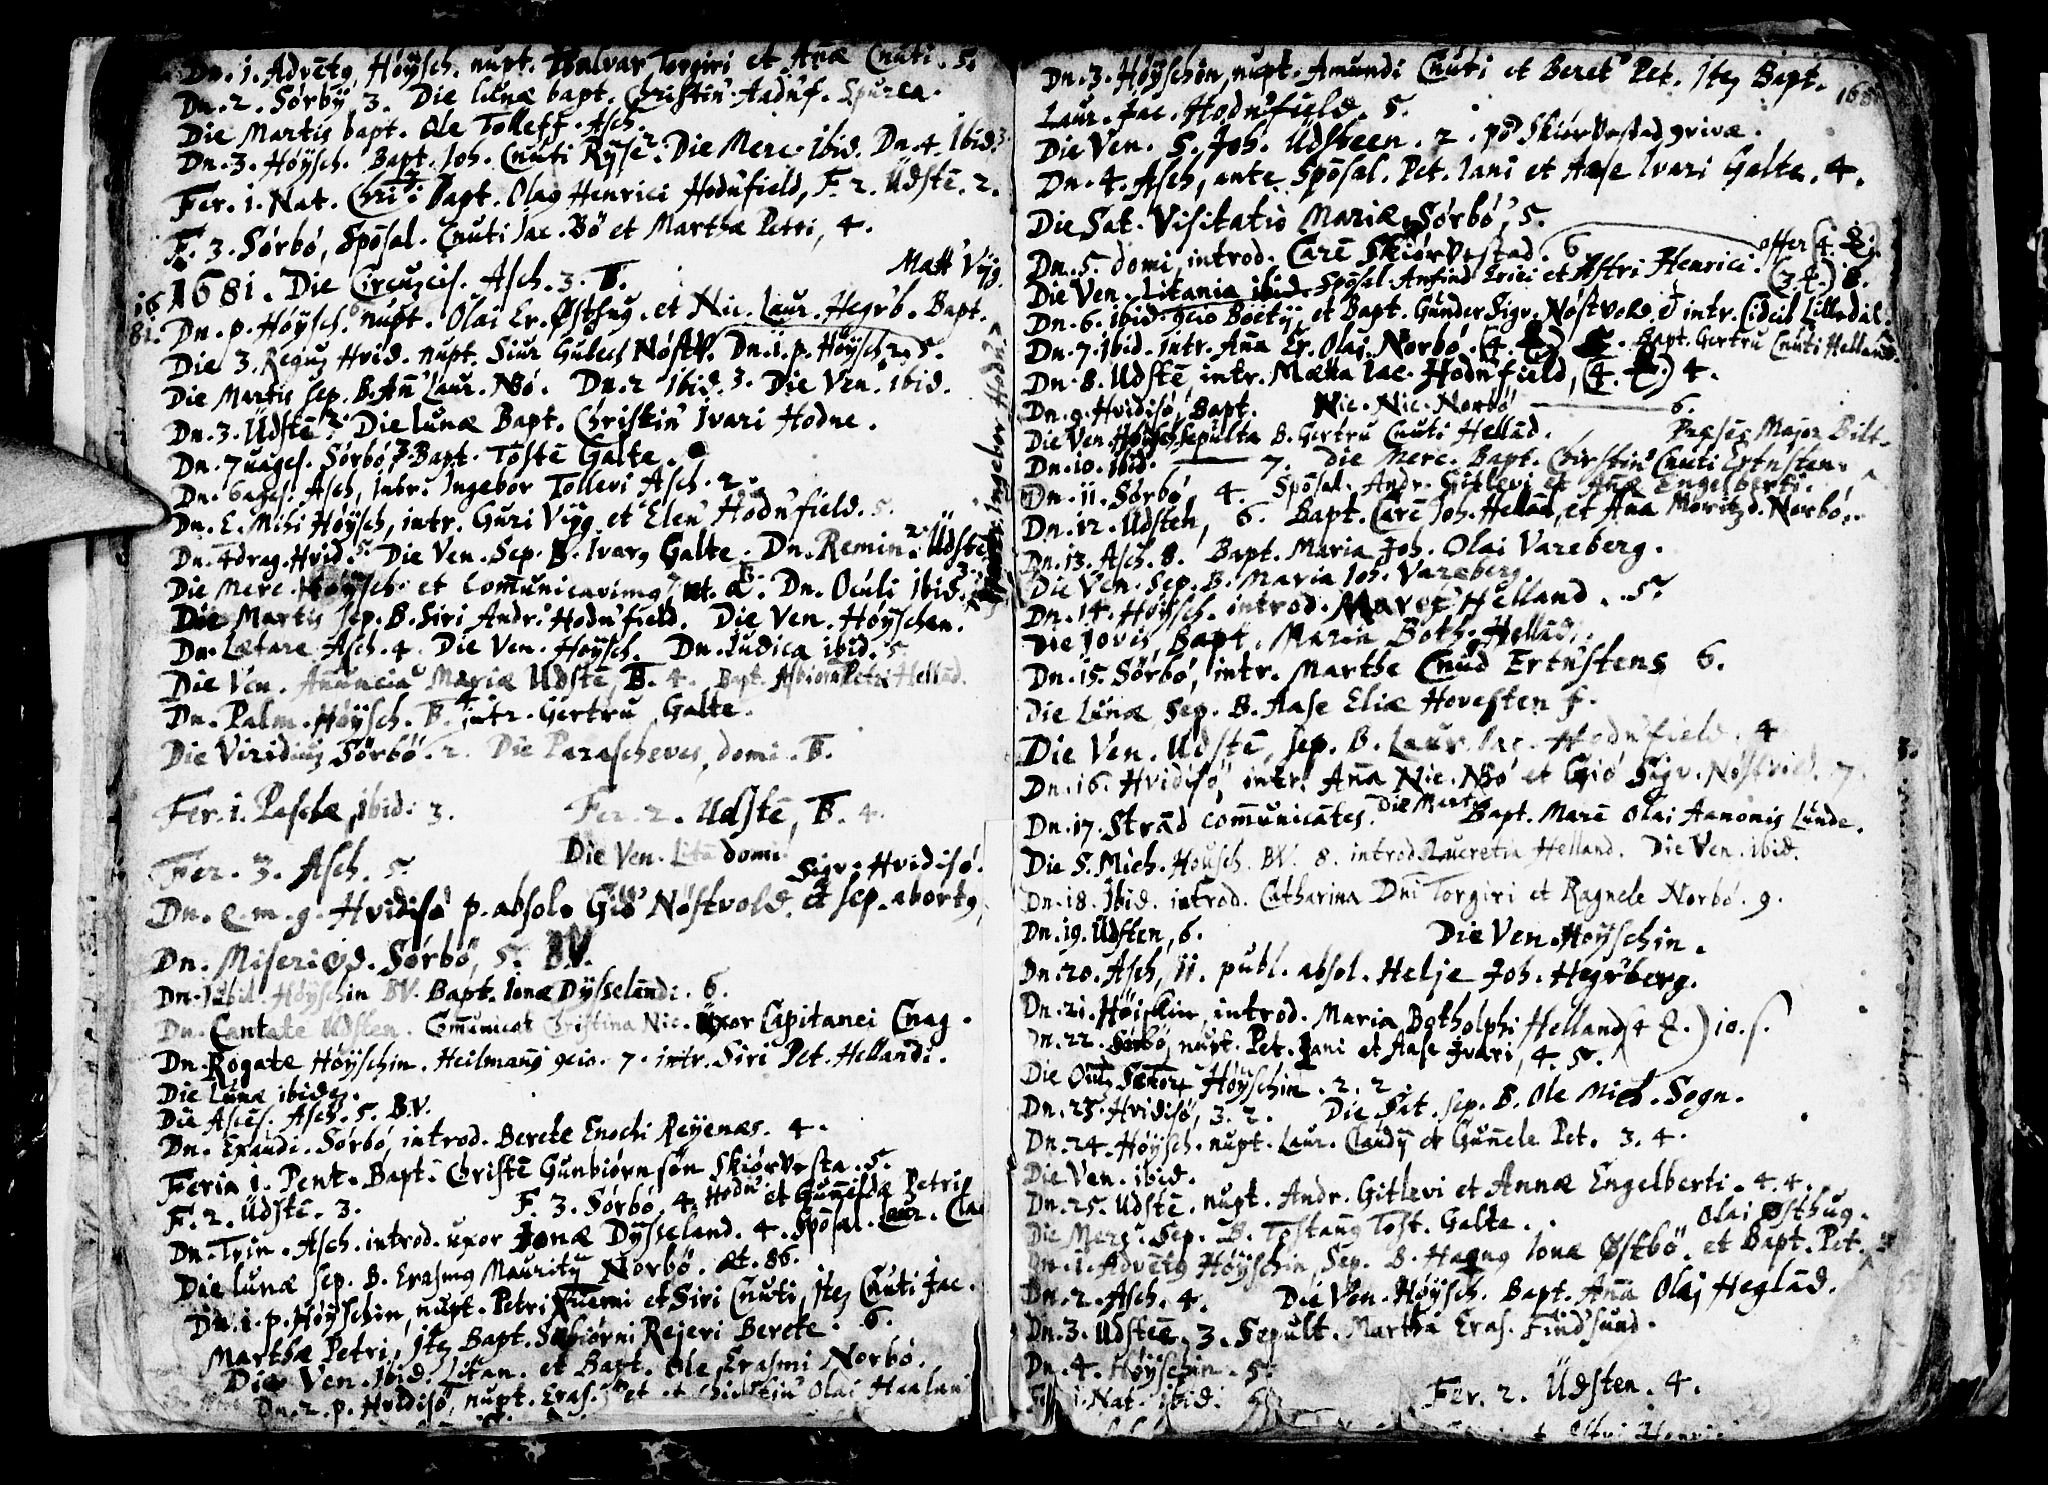 Dn. 1. Advētg Höÿsch. nupt. Halvar Torgiri et Añæ Cnuti. 5.
Dn. 2. Sörbÿ, 3. Die lunæ bapt. Christin Aaduf. Spurca.
Die Martis bapt. Ole Tolleff. Asch.
Dn. 3. Höÿsch. Bapt. Joh. Cnuti Rÿse. Die Merc. ibid. Dn. 4. Ibid. 3.
Fer. 1. Nat. Chri: Bapt. Olag Henrici Hodnfield, F. 2. Üdstē. 2.
F. 3. Sörbö, Spōsal. Cnuti Jac. Bö et Marthæ Petri, 4.
1681. Die Circūcis. Asch. 3. B. Matt Vÿg.
16
81. Dn. p. Höÿsch. nupt. Olai Er. Østhug. et Nic. Laur. Hegrb. Bapt.
Die 3. Regūz Hvid. nupt. Siur Nöstv. Dn. 1. p. Höÿsch 2. 5.
Die Martis sep. B. Añ Laur. NBö. Dn. 2 ibid. 3. Die Ven. ibid.
Dn. 3. Üdstē 2. Die lunæ Bapt. Christin Ivari Hodne.
Dn. 7uages. Sörbö 3. Bapt. Tostē Galte.
Dn. 6ages. Asch, Intr. Ingebor Tollevi Asch. 2.
Dn. E. Mihi Höÿsch, intr. Guri Vÿg et Elen Hodnfield. 5.
Dn. 4drag. Hvid. 5. Die Ven. Sep. B. Ivarg Galte. Dn. Remin. 2. Üdstē
Die Merc. Höÿsch. et Com̃unicavimg, Dn. Oculi ibid. 3.
Die Martis sep. B. Siri Andr. Hodnfield. Die Ven. Höÿschen.
Dn. Lætare Asch. 4. Die Ven. Höÿsch. Dn. Iudica ibid. 5
Die Ven. Añuncia Mariæ Üdstē, B. 4. Bapt. Asbiorn Petri Hellād.
Dn. Palm. Höÿsch. B. 4 intr. Gertru Galte.
Die Viridiuz Sörbö. 2. Die Parascheves, domi. B.
Fer. 1. Paschæ, ibid: 3. Fer. 2. Udstē, B. 4.
Fer. 3. Asch. 5. Die Ven. Litā domi Sigv. Hvidisö.
Dn. Q. m. g. Hvidisö p. absol. Giö Nöstvold. et sep. abortg
Dn. Misericod. Sörbö, 5. BV.
Dn. Iubil. Höÿschin BV. Bapt. Ionæ Dÿsselandi. 6.
Dn. Cantate Udsten. Com̃unicat Christina Nic. Üxor Capitanei Cnag.
Dn. Rogate Höÿschin. Heilmañg 7. intr. Siri Pet. Hellandi.
Die Lunæ ibidez.
Die Ascēs. Asch. 5. B.V.
Dn. Exaudi. Sörbö, introd. Berete Enochi Reÿenæs. 4.
Feria 1. Pent. Bapt. Christē Gunbiörnsön Skiörvesta. 5.
F. 2. Üdstē. 3. F. 3. Sörbö. 4. Hodn et Guñelda Petri
Dn. Trin. Asch. introd. uxor Ionæ Dÿsseland. 4. Spōsal. Laur. Cla
Die lunæ sep. B. Erasmg Mauritÿ Norbö. æt. 86.
Dn. 1. p. Höÿschin, nupt. Petri et Siri Cnuti, Itez Cnuti Jac.
Marthæ Petri, Itez Bapt. Rejeri Berete. 6.
Die Ven. ibid. Litan. et Bapt. Ole Erasmi Norbö.
Dn. 2. p. Hvidisö, nupt. Eras. Pet et Olai Haalan
Ingebor Hodn
Dn. 3. Höÿschin, nupt. Amundi Cnuti et Beret Pet. Itez Bapt. 168
Laur. Jac. Hodnfield. 5.
Die Ven. S. Joh. Üdsteen. 2. på Skiörvestad grivæ.
Dn. 4. Asch, ante Spōsal. Pet. Iani et Aase Ivari Galte. 4.
Die Sat. Visitatio Mariæ Sörbö, 5.
Dn. 5. domi introd. Carē Skiörvestad. 6 offer (4. )
Die Ven. Litania ibid. Spōsal. Anfind Erici et Astri Henrici. (3. ) 8.
Dn. 6. ibid. Boetÿ, et Bapt. Gunder Sigv. Nöstvold. et intr. Cidcil Lilledal.
Dn. 7. ibid. intr. Aña Er. Olai Norbö. (4. ) Bapt. Gertru Cnuti Helland.
Dn. 8. Udstē intr. Mæna Iac. Hodnfield, (4. ) 4.
Dn. 9. Hvidisö, Bapt. Nic. Nic. Norbö 6.
Die Ven. Höÿsch sepulta B. Gertru Cnuti Hellād. Præses Major Bilt.
Dn. 10. ibid. 7. Die Merc. Bapt. Christin Cnuti Ertnsten.
Dn. 11. Sörbö, 4. Spōsal. Andr. Gitlevi et Añæ Engelberti.
Dn. 12. Udsten, 6. Bapt. Carē Joh. Hellād, et Aña Moritz d. Norbö.
Dn. 13. Asch. 8. Bapt. Maria Joh. Olai Vareberg.
Die Ven. Sep. B. Maria Joh. Vareberg
Dn. 14. Höÿsch. introd. Marge Helland. 5.
Die Iovis, Bapt. Maria Both. Hellād.
Dn. 15. Sörbö, intr. Marthe Cnud Ertnstens 6.
Die Lunæ Sep. B. Aase Eliæ Hovesten f.
Die Ven. Udstē, sep. B. Laur. Iac. Hodnfield. 4
Dn. 16. Hvidisö, intr. Aña Nic. NBö et Giö Sigv. Nöstvold. 7.
Dn. 17. Strād com̃unicātes. Die Mart. Bapt. Marē Olai Aanonis Lunde.
Die S. Mich. Höÿsch. BV. 8. introd. Lucretia Helland. Die Ven. ibid.
Dn. 18. Ibid. introd. Catharina Dni Torgiri et Ragnele Norbö. 9.
Dn. 19. Üdsten, 6. Die Ven. Höÿschin.
Dn. 20. Asch, 11. publ. absol. Helje Joh. Hegrberg.
Dn. 21. Höischin, introd. Maria Botholphi Helland (4 ) 10.
Dn. 22. Sörbö, nupt. Pet. Iani et Aase Ivari, 4. 5.
Die Oūz Sāctorz Höÿschin. 2. 2
Dn. 23. Hvidisö, 3. 2. Die Sat. sep. B. Ole Mich. Sogn.
Dn. 24. Höÿsch. nupt. Laur. Claudÿ et Guñele Pet. 3. 4.
Die Ven. ibid.
Dn. 25. Udstē. nupt. Andr. Gitlevi et Annæ Engelberti. 4. 4.
Die Merc. Sep. B. Tostang Tost. Galte. Olai Østhug.
Dn. 1. Advētg Höÿschin, Sep. B. Hagng Ionæ Østbö. et Bapt. Pet.
Dn. 2. Asch. 4. Die Ven. Höÿsch. Bapt. Aña Olai Heglād.
Dn. 3. Udsteē. 3. Sepult. Martha Eras. Findsund.
Dn. 4. Höÿschin. 5.
1. Nat. ibid. Fer. 2. Üdsten. 4.
Astri Henrici